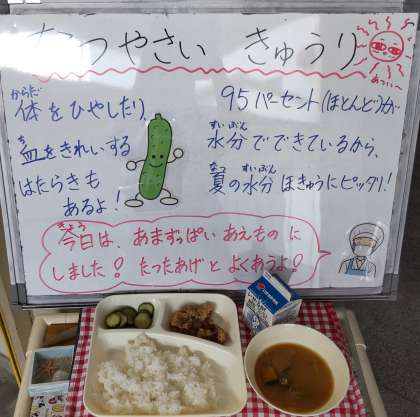 なつやさい きゅうり
あつい〜
からだ
体をひやしたり、
血をきれいする
はたらきも
あるよ!
95パーセント(ほとんど)が
すいぶん
水分でできているから、
なつ すいぶん
夏の水分ほきゅうにピッタリ!
きょう
今日は、あまずっぱいあえものに
しました! たつたあげとよくあうよ!